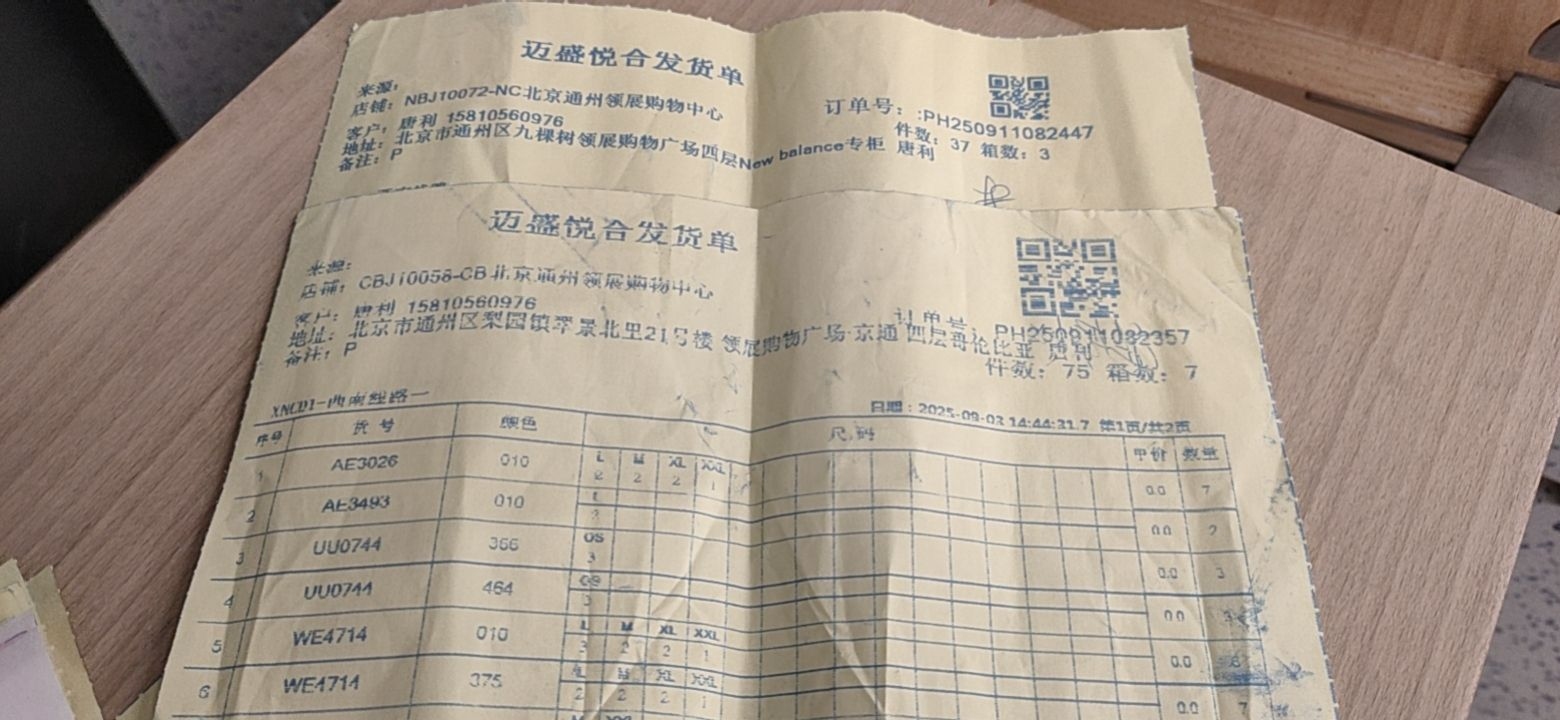 迈盛悦合发货单
来源:
店铺: NBJ10072-NC北京通州领展购物中心
订单号: :PH250911082447
客户: 唐利 15810560976
件数: 37 箱数: 3
地址: 北京市通州区九棵树领展购物广场四层New balance专柜 唐利
备注: P
迈盛悦合发货单
来源:
店铺: CBJ10058-CB北京通州领展购物中心
订单号: PH250911082357
客户: 唐利 15810560976
地址: 北京市通州区梨园镇翠景北里21号楼 领展购物广场·京通 四层哥伦比亚 唐利
件数: 75 箱数: 7
备注: P
XNCD1-西南线路一
日期:2025-09-03 14:44:31.7 第1页/共2页
序号 货号 颜色 尺码 单价 数量
L M XL XXL
1 AE3026 010 2 2 2 1 0.0 7
L
2 AE3493 010 2 0.0 2
OS
3 UU0744 366 3 0.0 3
OS
4 UU0744 464 3 0.0 3
L M XL XXL
5 WE4714 010 3 2 2 1 0.0 8
L M XL XXL
6 WE4714 375 2 2 2 1 0.0 7